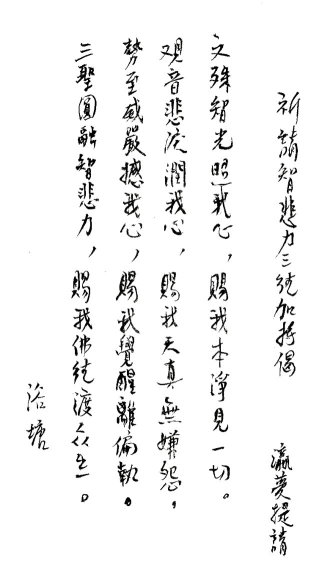 祈請智悲力三统加持偈
瀛夢提請
文殊智光照我心，賜我本淨見一切。
覌音悲淚潤我心，賜我天真無嫌怨。
勢至威嚴撼我心，賜我覺醒離偏執。
三聖圓融智悲力，賜我佛统渡众生。
浴塘